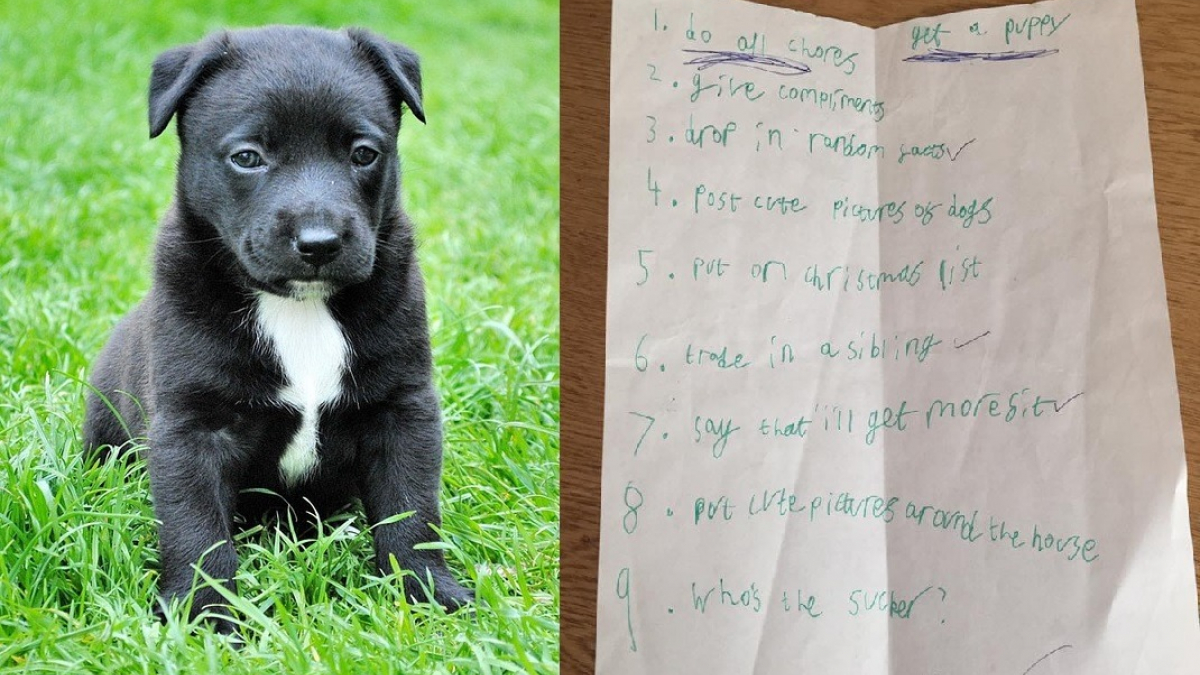 get a puppy
1. do all chores
2. give compliments
3. drop in random facts
4. post cute pictures of dogs
5. put on christmas list
6. trade in a sibling
7. say that i'll get more fit
8. put cute pictures around the house
9. Who's the sucker?